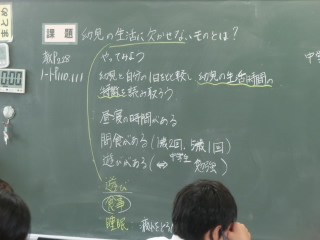 まとめ
課題 幼児の生活に欠かせないものとは？
教P.228
ノートP.110.111
やってみよう
幼児と自分の1日を比較し幼児の生活時間の
特徴を読み取ろう
昼寝の時間がある
間食がある(1歳2回、5歳1回)
遊びがある(⇔中学生 勉強)
遊び
食事
睡眠
中学